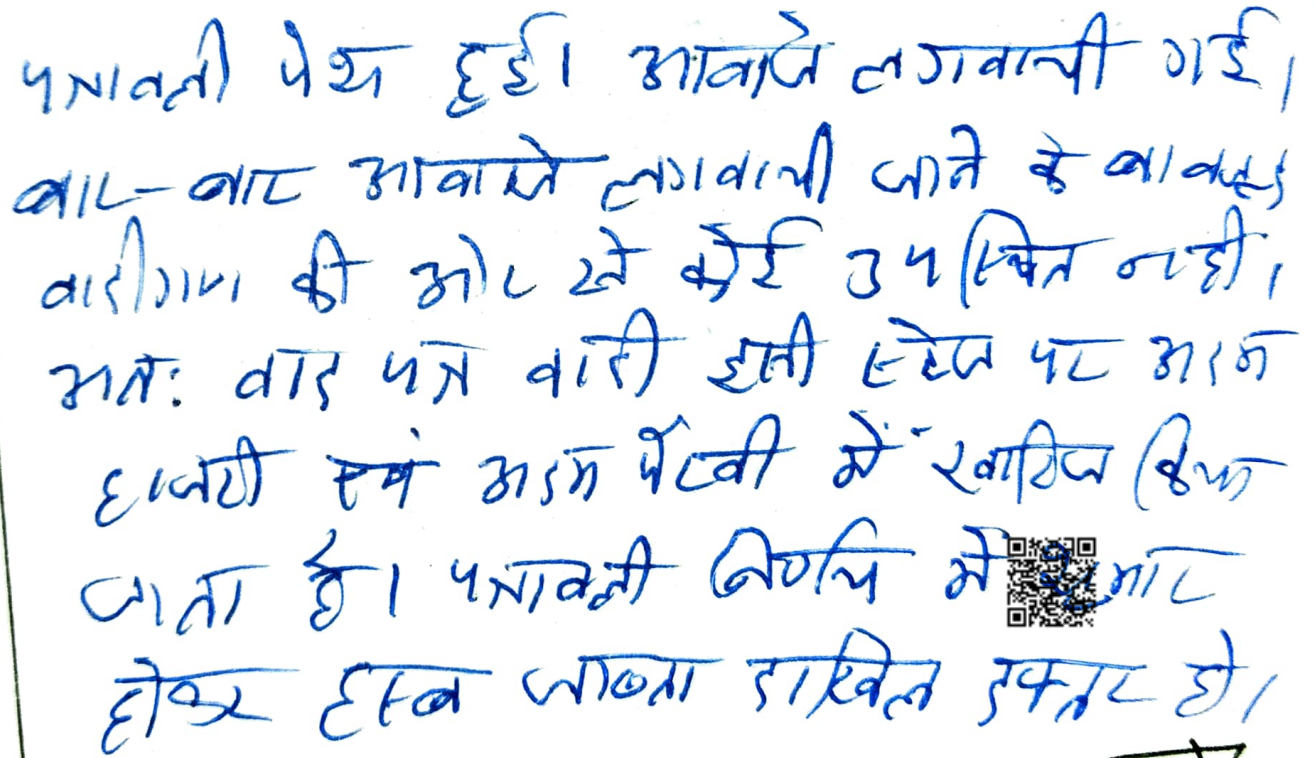 पत्रावली पेश हुई। आवाजे लगवायी गई।
बार-बार आवाजे लगवायी जाने के बावजूद
वादीगण की ओर से कोई उपस्थित नही।
अतः वाद पत्र वादी इसी स्टेज पर अदम
हाजरी एवं अदम पैरवी में खारिज किया
जाता है। पत्रावली निर्णय में शुमार
होकर हस्ब जाब्ता दाखिल दफ्तर हो।